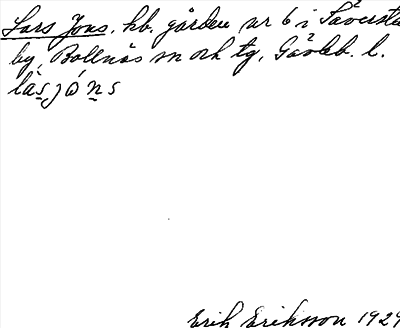 Lars Jons, hb. gården nr 6 i Säversta
by, Bollnäs sn och tg, Gävleb. l.
làsjòns
Erik Eriksson 1929